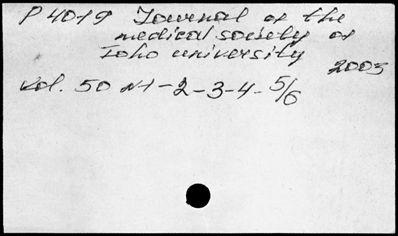 P4019 Journal of the
medical society of
Toho university
2003
Vol. 50 N1-2-3-4-5/6